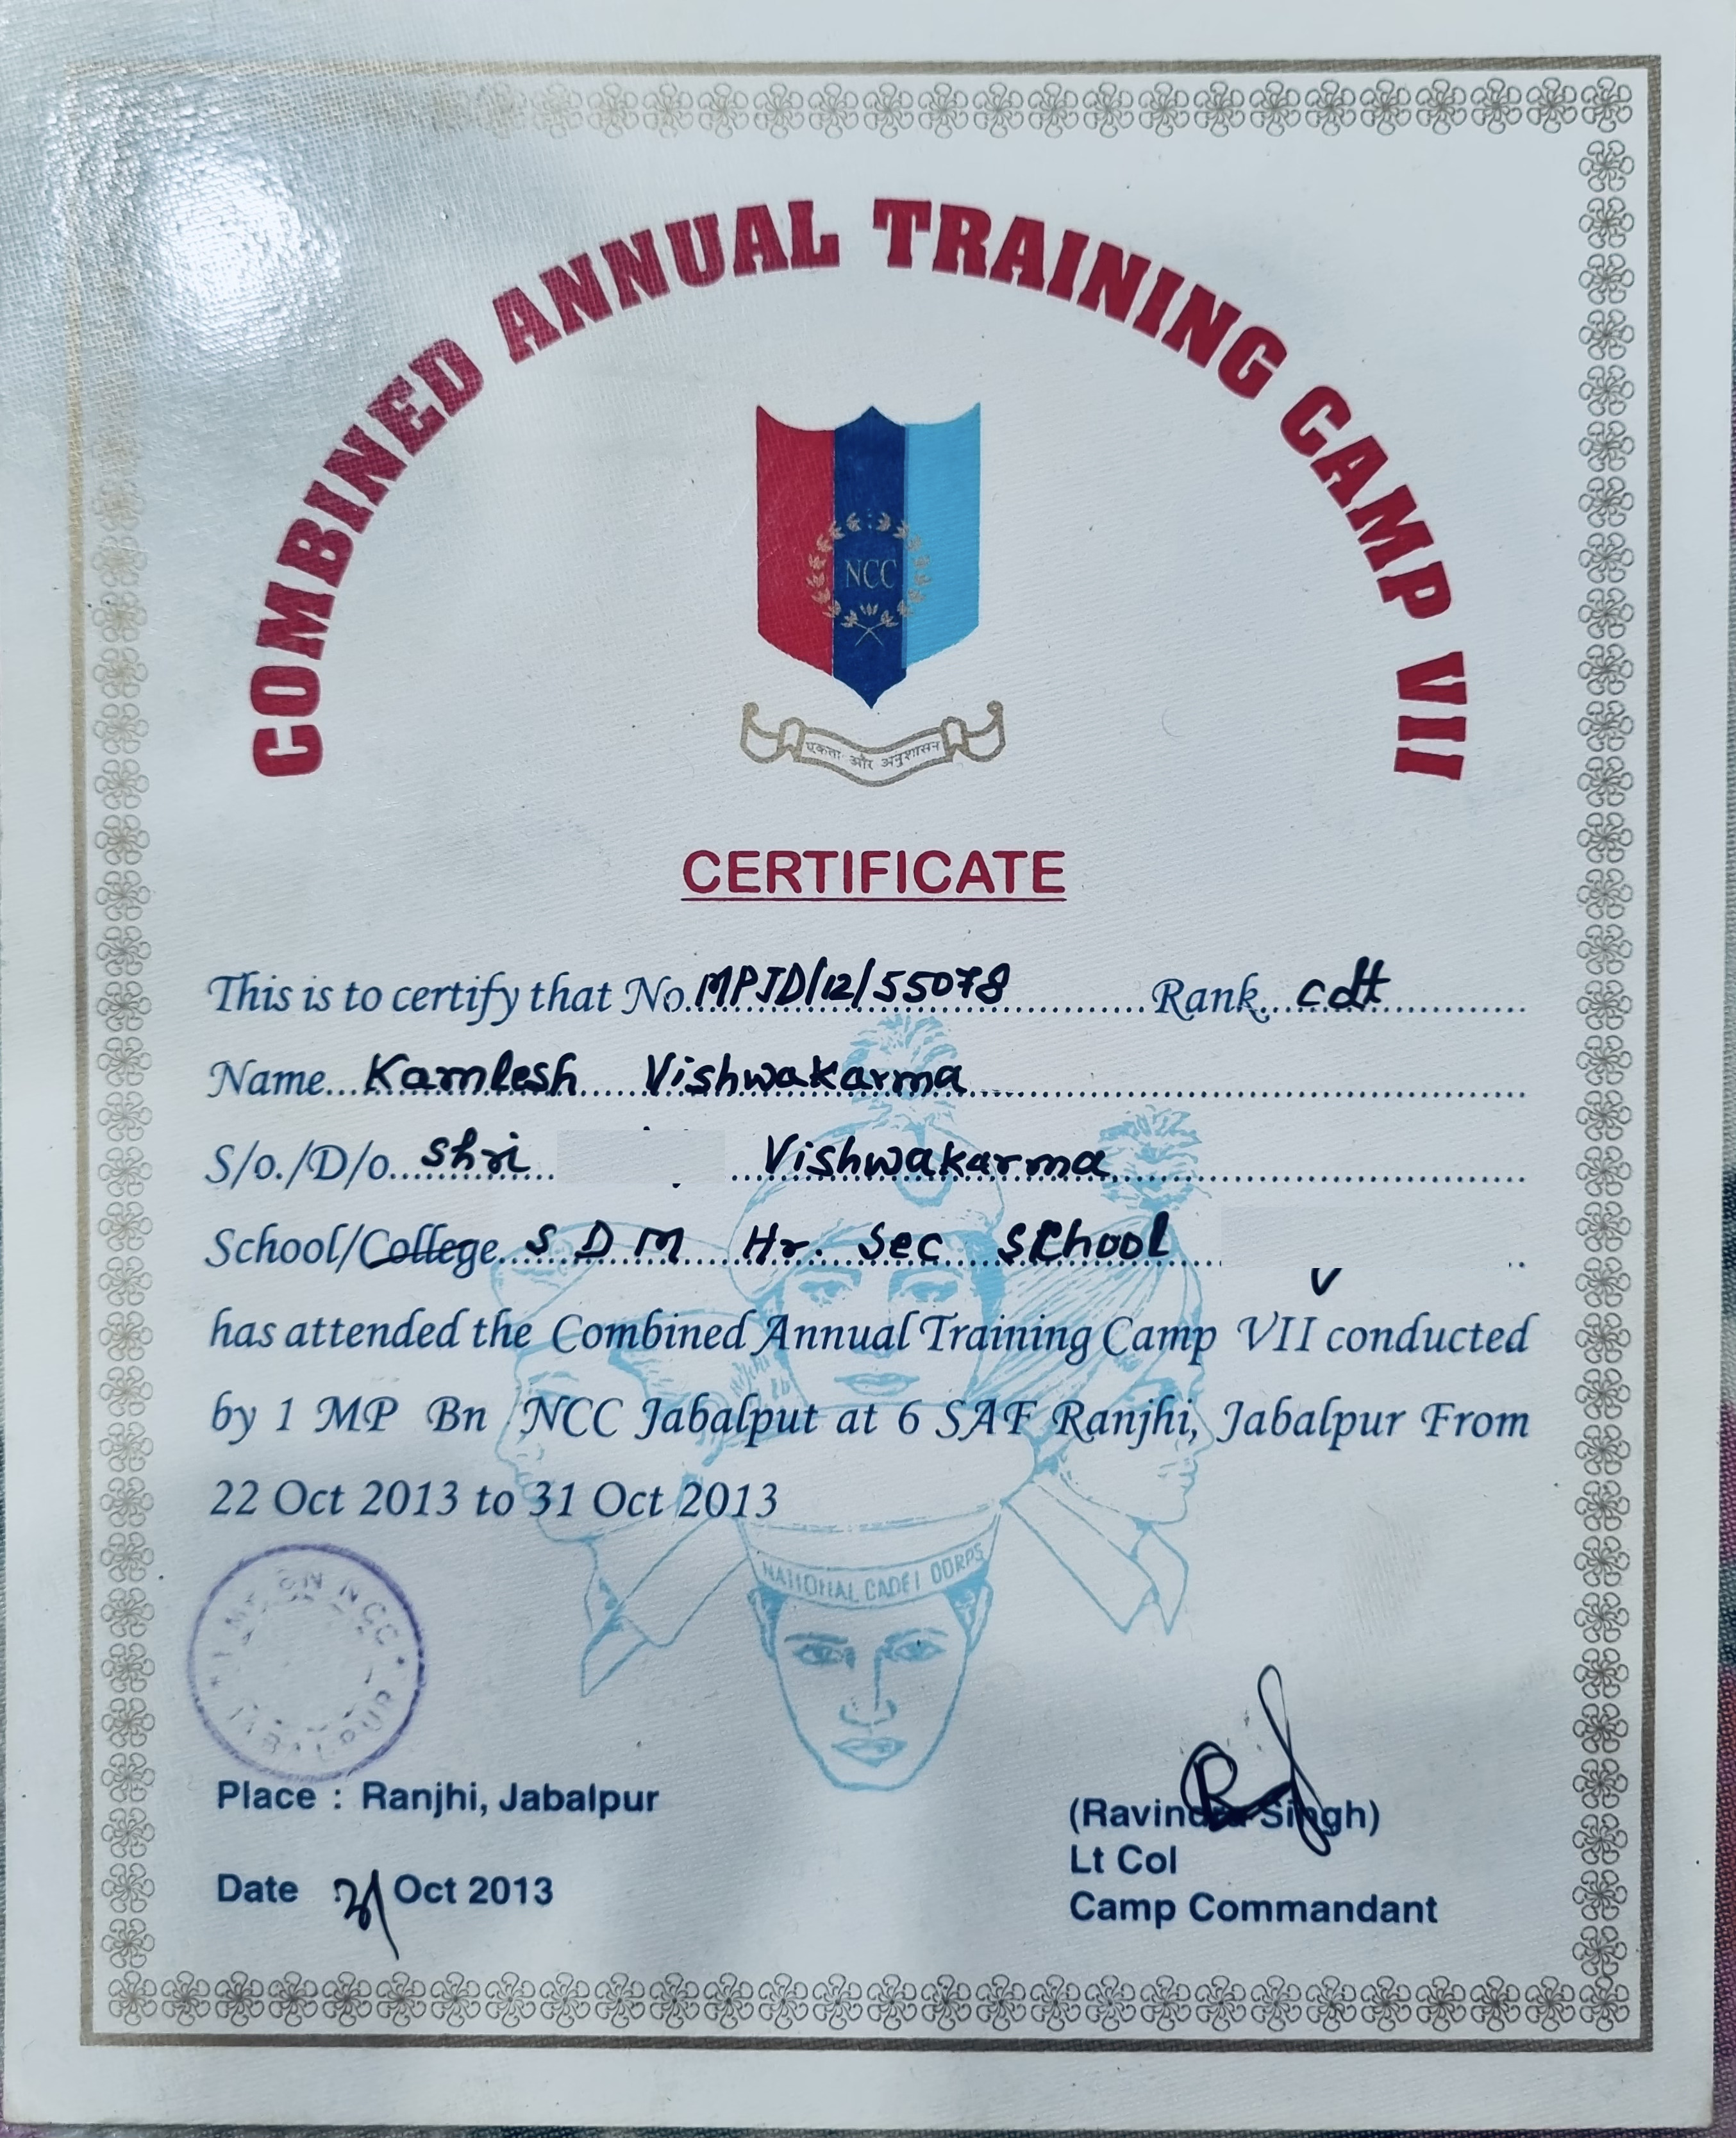 COMBINED ANNUAL TRAINING CAMP VII
NCC
एकता और अनुशासन
CERTIFICATE
This is to certify that No. MPJD/12/55078 Rank cdt
Name Kamlesh Vishwakarma
S/o./D/o. Shri Vishwakarma
School/College S D M Hr. Sec School
has attended the Combined Annual Training Camp VII conducted
by 1 MP Bn NCC Jabalput at 6 SAF Ranjhi, Jabalpur From
22 Oct 2013 to 31 Oct 2013
NATIONAL CADET CORPS
1 MP BN NCC
JABALPUR
Place : Ranjhi, Jabalpur
Date 31 Oct 2013
(Ravindra Singh)
Lt Col
Camp Commandant